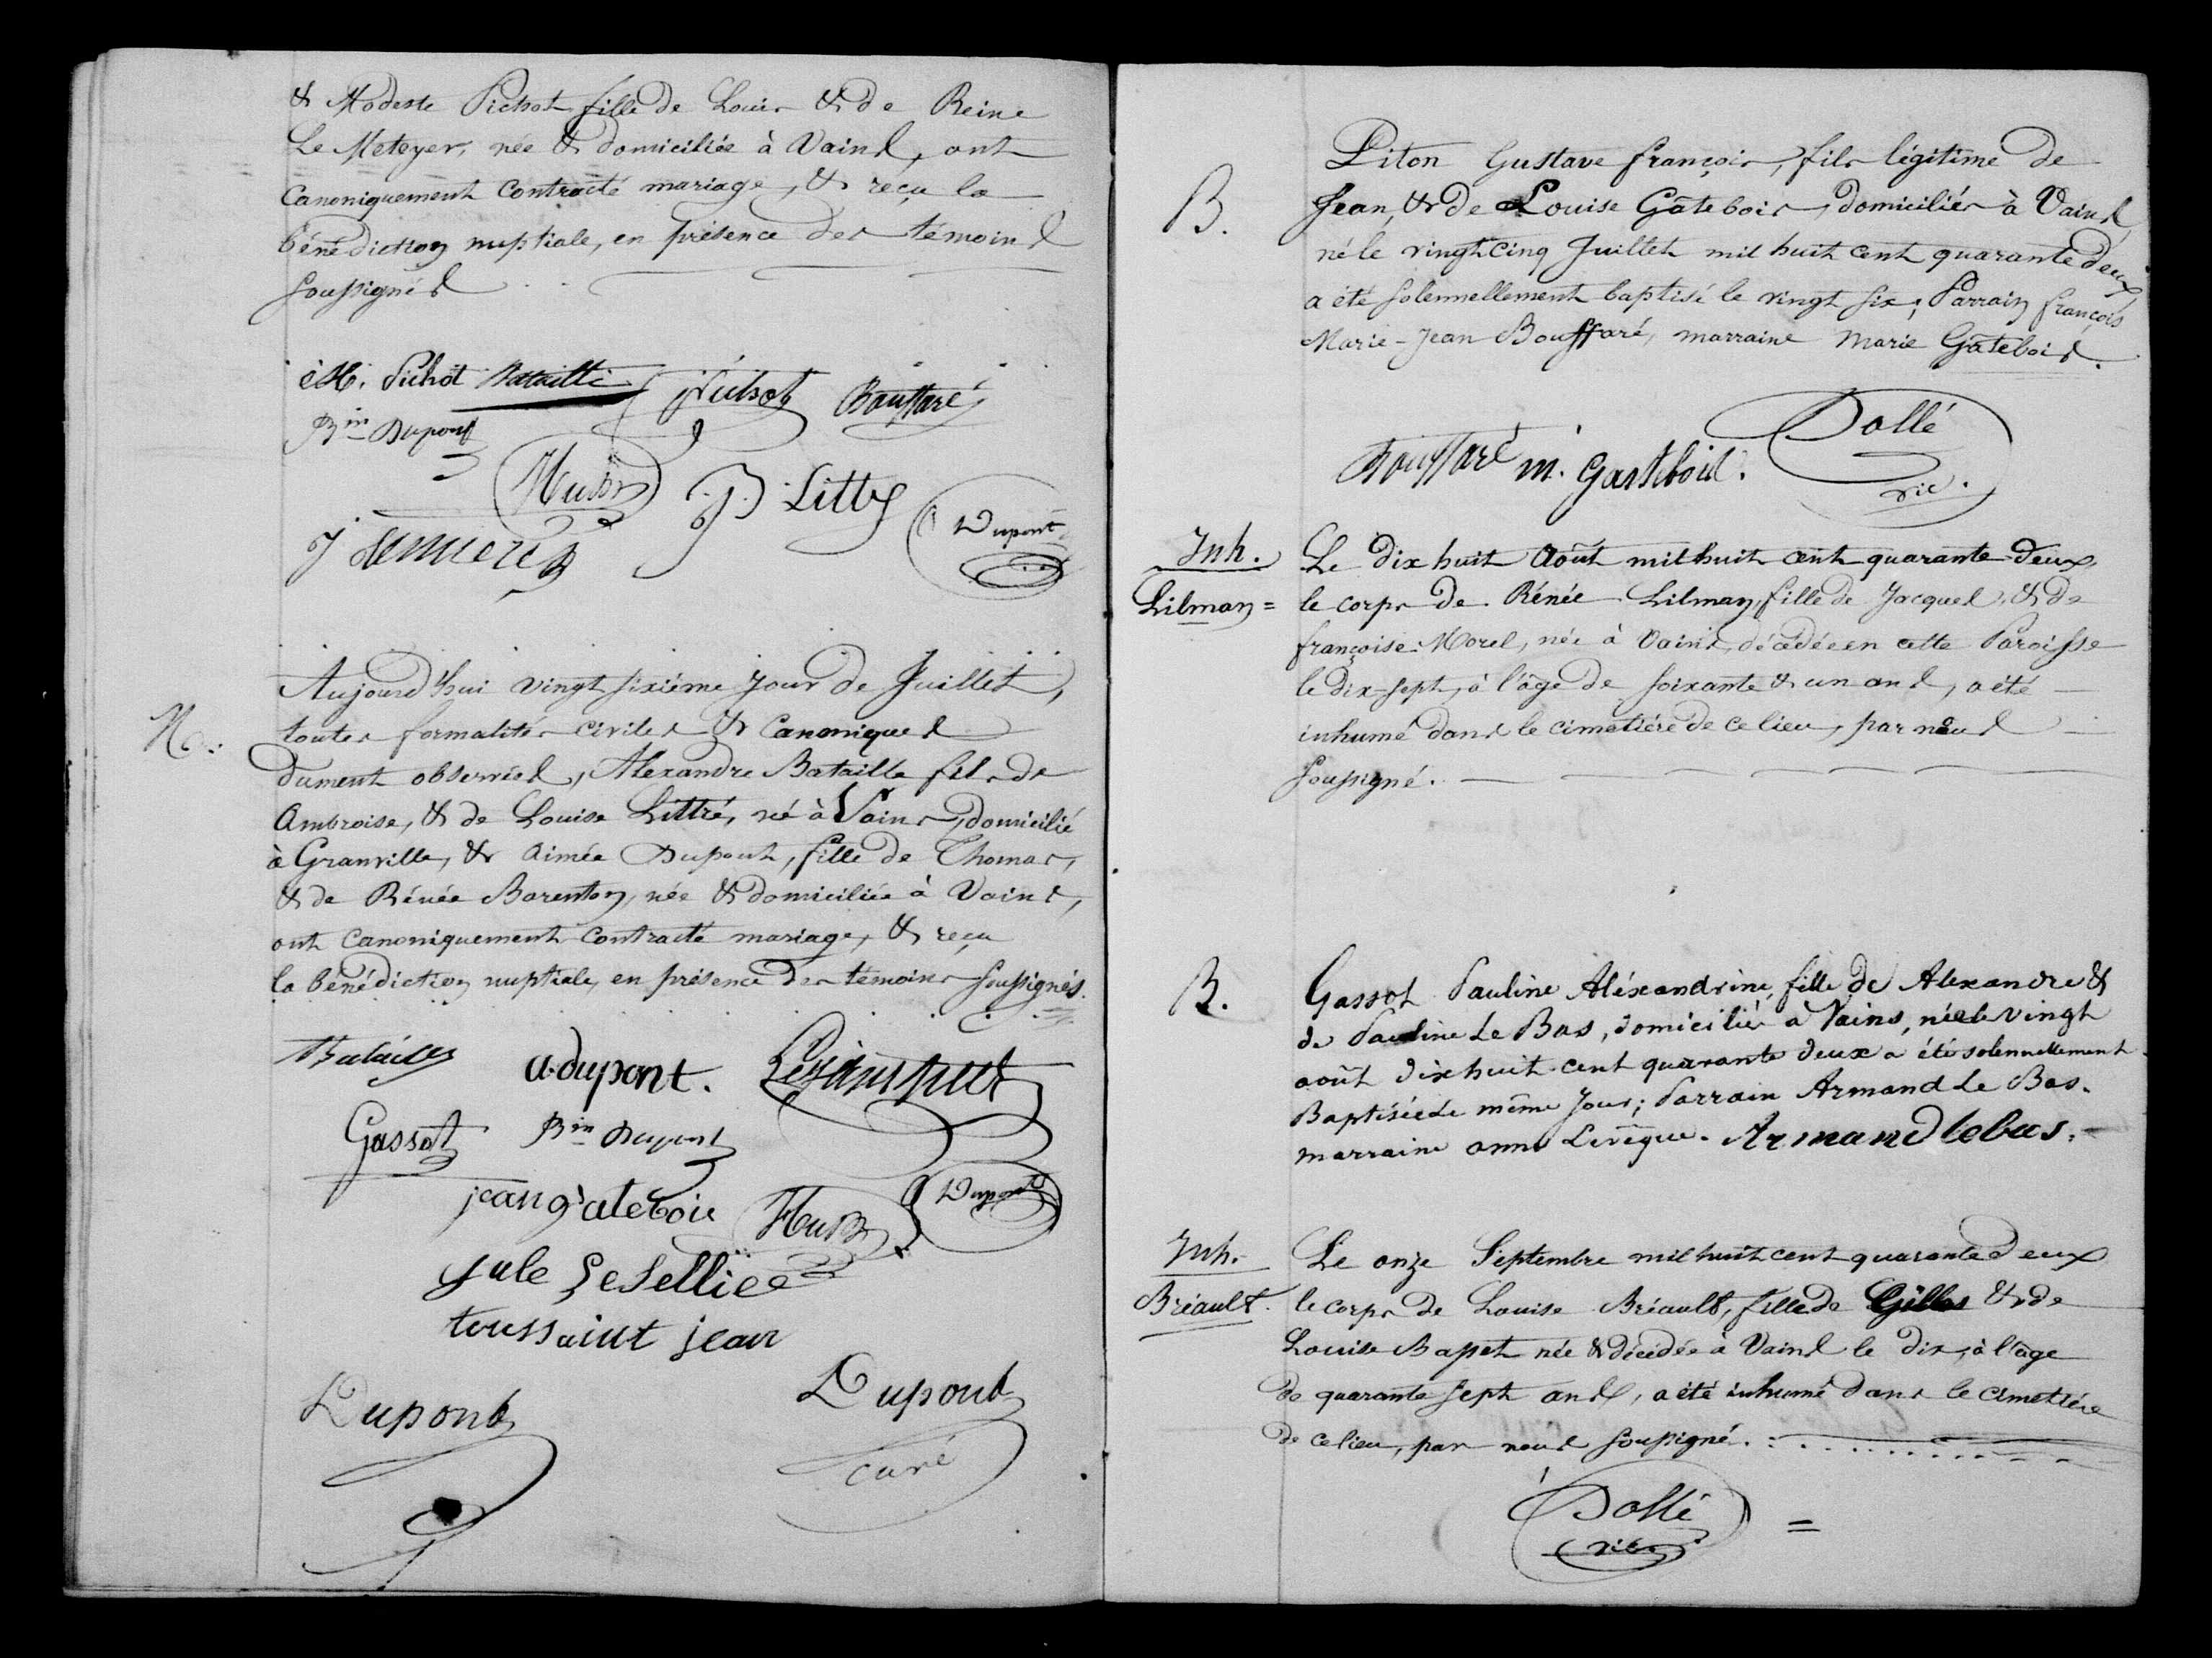 & Modeste Pichot fille de Louis & de Reine
Le Meteyer, née & domiciliée à Vains, ont
canoniquement contracté mariage, & reçu la
bénédiction nuptiale, en présence des témoins
soussignés
M. Pichot Bataille Pichot Bouffaré
Bin Dupont
Huson P. Litty
Dupont
M.
Aujourd'hui vingt sixième jour de Juillet,
toutes formalités civiles & canoniques
dument observées, Alexandre Bataille fils de
Ambroise, & de Louise Littré, né à Vains, domicilié
à Granville, & Aimée Dupont, fille de Thomas,
& de Rénée Barenton, née & domiciliée à Vains,
ont canoniquement contracté mariage, & reçu
la bénédiction nuptiale, en présence des témoins soussignés.
Bataille a. dupont.
Gassot Bin Dupont
jean gateboie Huson Dupont
jule Leselliee
toussaint jean
Dupont Dupont
curé
B.
Piton Gustave françois, fils légitime de
Jean, & de Louise Gâtebois, domiciliés à Vains,
né le vingt cinq Juillet mil huit cent quarante deux
a été solennellement baptisé le vingt six; Parrain françois
Marie-Jean Bouffaré, marraine Marie Gâtebois.
Bouffaré m. Gastebois. Dollé
vic.
Inh.
Lilman =
Le dix huit Août mil huit cent quarante-deux,
le corps de Rénée Lilman, fille de Jacques, & de
françoise Morel, née à Vains, décédée en cette Paroisse
le dix-sept, à l'âge de soixante & un ans, a été
inhumé dans le cimetière de ce lieu, par nous
soussigné.
B.
Gassot Pauline Aléxandrine, fille de Alexandre &
de Pauline Le Bas, domicilié à Vains, née le vingt
août dix huit cent quarante deux a été solennellement
Baptisée le même jour; Parrain Armand Le Bas.
marraine anne Levêque. Armand lebas.
Inh.
Bréault.
Le onze Septembre mil huit cent quarante deux
le corps de Louise Bréault, fille de Gilles & de
Louise Bapet née & décédée à Vains le dix, à l'âge
de quarante sept ans, a été inhumé dans le cimetière
de ce lieu, par nous soussigné.
Dollé
vic.